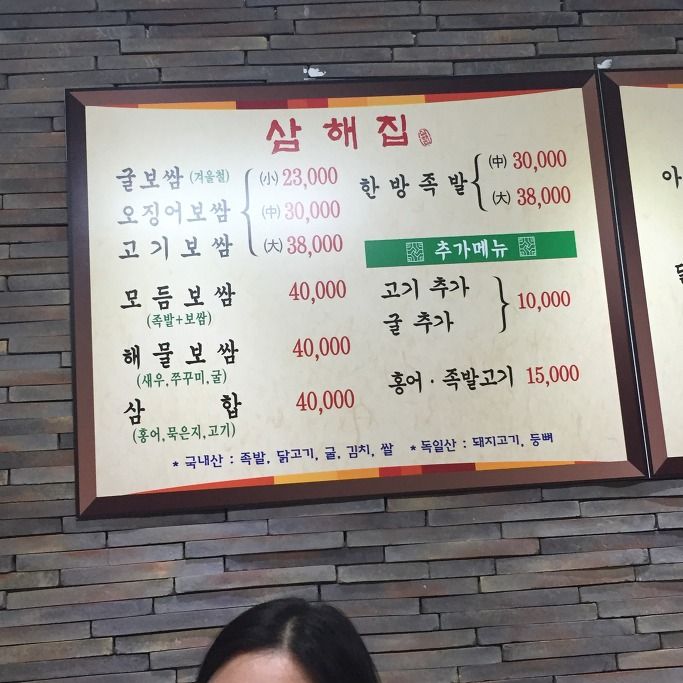 삼해집
굴보쌈 (겨울철) (小) 23,000
오징어보쌈 (中) 30,000
고기보쌈 (大) 38,000
모듬보쌈 40,000
(족발+보쌈)
해물보쌈 40,000
(새우,쭈꾸미,굴)
삼합 40,000
(홍어,묵은지,고기)
한방족발 (中) 30,000
(大) 38,000
추가메뉴
고기 추가 10,000
굴 추가
홍어·족발고기 15,000
* 국내산 : 족발, 닭고기, 굴, 김치, 쌀 * 독일산 : 돼지고기, 등뼈
아